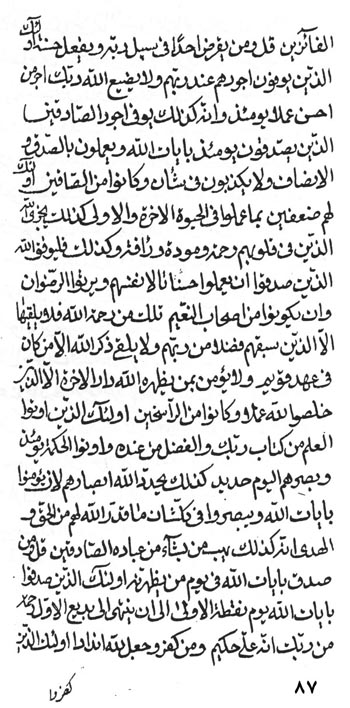 الفائزين قل ومن يقرض احدا فی سبيل ربّه ويفعل حسنا اولئک
الذين يوفون اجورهم عند ربّهم ولا يضيع الله ربّک اجر من
احسن عملا يومئذ وانّه كذلک يوفی اجور الصّادقين
الذين يصدقون يومئذ بايات الله ويعملون بالصّدق و
الانصاف ولا يكذبون فی شئان وكانوا من الصّافين اولئک
لهم ضعفين بما عملوا فی الحيوة الاخرة والاولى كذلک يجزی الله
الذين فی قلوبهم رحمة ومودة ورافة وكذلک فليوفی الله
الذين صدقوا ان يعملوا احسانا لانفسهم ويريدوا الرضوان
وان يكونوا من اصحاب النّعيم تلک من رحمة الله قد يلقيها
الّا الذين سبقهم فضلا من ربّهم ولا يلقی ذكر الله الّا من كان
فی عهد قويم ولا يؤمن بمن يظهره الله دار الاخرة الّا الذين
خلصوا لله عملا وكانوا من الرّاسخين اولئک الذين اوتوا
العلم من كتاب ربّک والفضل من عنده واوتوا الحكمة يومئذ
وبصرهم اليوم حديد كذلک يحدد الله ابصارهم لان يومنوا
بايات الله ويبصروا فی كلّ شئان ما قدّر الله لهم من الحقّ و
الهدى انّه كذلک يهب من يشاء من عباده الصّادقين قل ومن
صدق بايات الله فی يوم من يظهرنّه اولئک الذين صدقوا
بايات الله يوم نقطة الاولى الى ان ينتهی الى بديع الاوّل رحمة
من ربّک انّه علیّ حكيم ومن كفر وجعل لله اندادا اولئک الذين
كفروا
٨٧